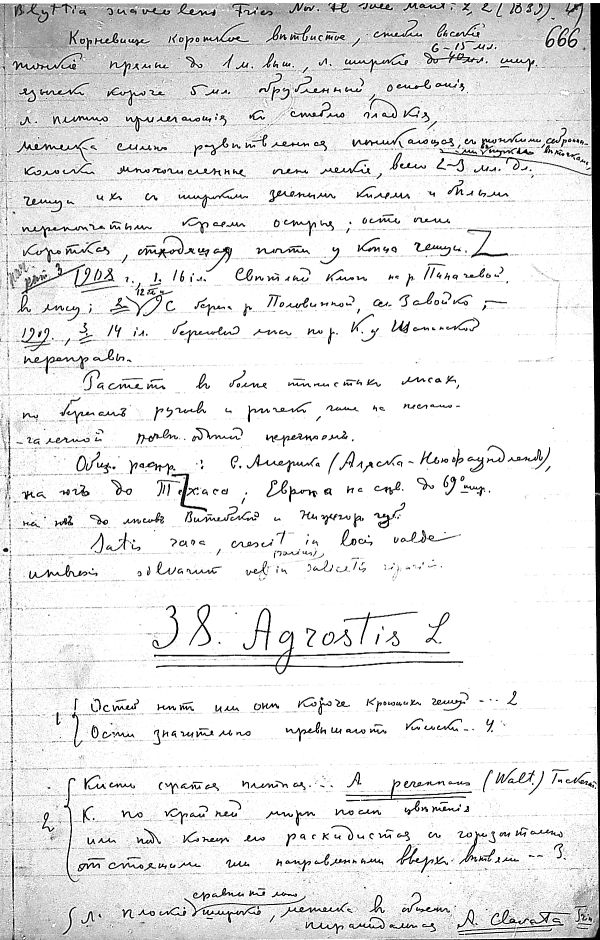 Blyttia suaveolens Fries Nov. Fl. Suec. Mant. 2, 2 (1839).
666
Корневище короткое вѣтвистое, стебли высокіе
тонкіе прямые до 1 м. выш., л. широкіе до 6–15 мл. шир.
язычекъ короче 5 мл. обрубленный,
л. плотно прилегающія къ стеблю гладкія,
метелка сильно развѣтвленная поникающая, съ тонкими
колоски многочисленные очень мелкіе, всего 2–3 мл. дл.,
чешуи ихъ съ широкимъ зеленымъ килемъ и бѣлымъ
перепончатымъ краемъ острыя; ости очень
короткая, отходящая почти у конца чешуи.
1908 г., 16 іл. Свѣтлый Ключъ на р. Пиначевой,
въ лѣсу; 9 С берега р. Половинной, сел. Завойко,
1909, 14 іл. береговой лѣсъ по р. К. у Щапинской
переправы.
Растетъ въ болѣе тѣнистыхъ лѣсахъ,
по берегамъ ручьевъ и рѣчекъ, чаще на песчано-
-галечной почвѣ бѣдной перегноемъ.
Общ. распр.: С. Америка (Аляска-Ньюфаундлендъ),
на югъ до Техаса; Европа на сѣв. до 69° шир.
на югъ до лѣсовъ Витебской и Нижегор. губ.
Satis rara, crescit in locis valde
umbrosis silvarum vel in salicetis ripariis.
38. Agrostis L.
1 { Остей нѣтъ или они короче кроющихъ чешуй --- 2
Ости значительно превышаютъ колоски.. 4.
2 { Кисть сжатая плотная... A perennans (Walt.) Tuckerm.
К. по крайней мѣрѣ послѣ цвѣтенія
или подъ конецъ его раскидистая съ горизонтально
отстоящими или направленными вверхъ вѣтвями -- 3.
{ Л. плоскіе сравнительно широкіе, метелка въ общемъ
пирамидальная A. clavata Trin